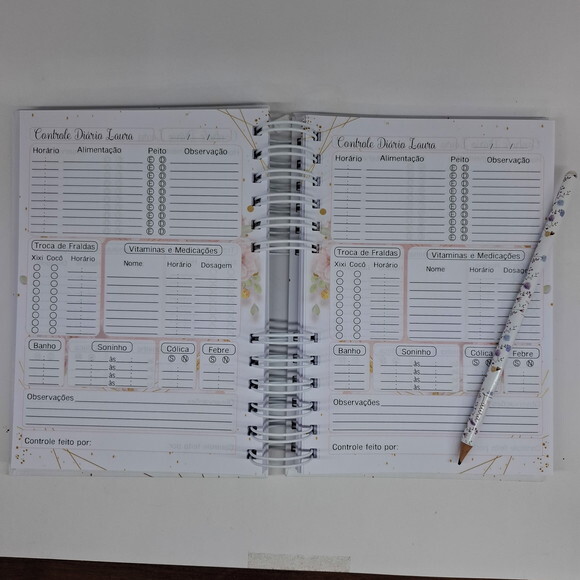 Controle Diário Laura
Horário Alimentação Peito Observação
E D
E D
E D
E D
E D
E D
E D
E D
E D
Troca de Fraldas
Xixi Cocô Horário
Vitaminas e Medicações
Nome Horário Dosagem
Banho
Soninho
às
às
às
às
Cólica
S N
Febre
S N
Observações
Controle feito por:
Controle Diário Laura
Horário Alimentação Peito Observação
E D
E D
E D
E D
E D
E D
E D
E D
E D
Troca de Fraldas
Xixi Cocô Horário
Vitaminas e Medicações
Nome Horário Dosagem
Banho
Soninho
às
às
às
às
Cólica
S N
Febre
S N
Observações
Controle feito por: